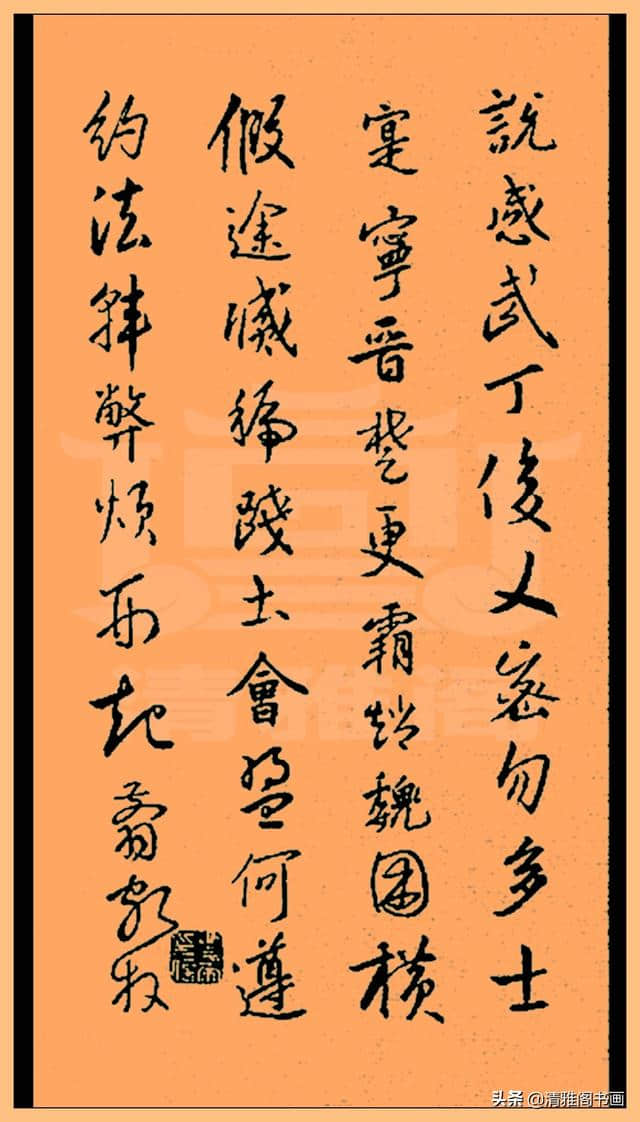 說感武丁俊乂密勿多士
寔寧晉楚更霸趙魏困橫
假途滅虢踐土會盟何遵
約法韓弊煩刑起翦頗牧
清雅阁
头条 @清雅阁书画